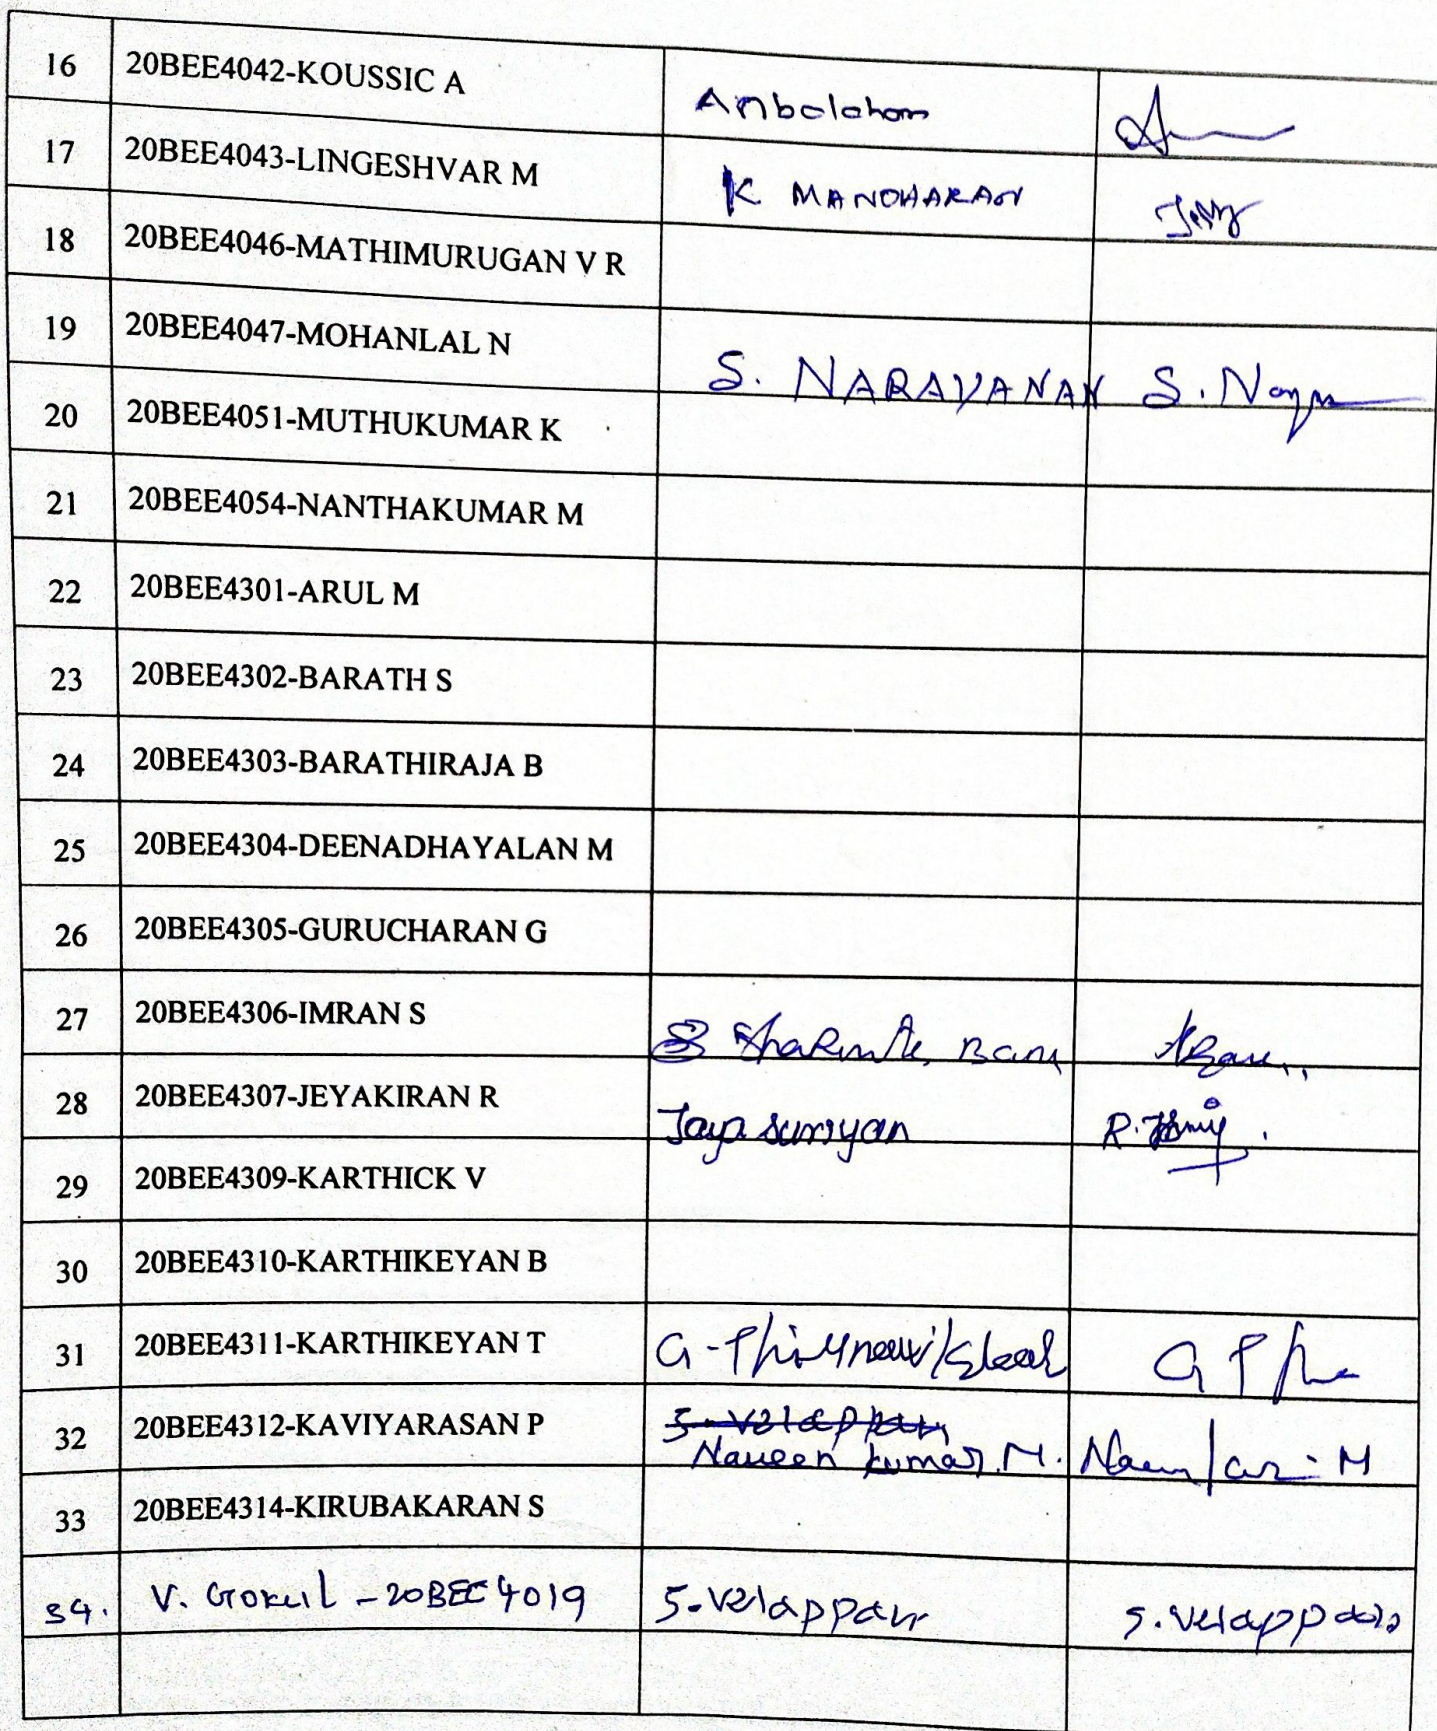 16 20BEE4042-KOUSSIC A Anbalahan
17 20BEE4043-LINGESHVAR M K MANOHARAN
18 20BEE4046-MATHIMURUGAN V R
19 20BEE4047-MOHANLAL N S. NARAYANAN S.
20 20BEE4051-MUTHUKUMAR K
21 20BEE4054-NANTHAKUMAR M
22 20BEE4301-ARUL M
23 20BEE4302-BARATH S
24 20BEE4303-BARATHIRAJA B
25 20BEE4304-DEENADHAYALAN M
26 20BEE4305-GURUCHARAN G
27 20BEE4306-IMRAN S Banu
28 20BEE4307-JEYAKIRAN R Jaya suriyan R.
29 20BEE4309-KARTHICK V
30 20BEE4310-KARTHIKEYAN B
31 20BEE4311-KARTHIKEYAN T G
32 20BEE4312-KAVIYARASAN P S. Velappan
Naveen kumar. M. M
33 20BEE4314-KIRUBAKARAN S
34. V. Gokul - 20BEE4019 S. Velappan S. Velappan